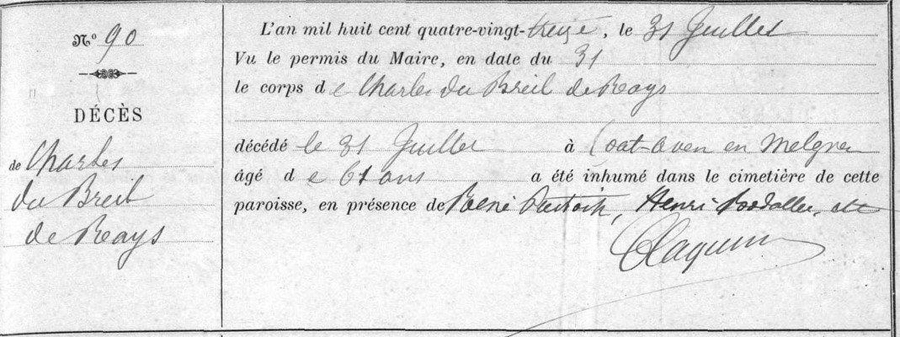 Nº 90
DÉCÈS
de Charles
du Breil
de Rays
L'an mil huit cent quatre-vingt-treize, le 31 Juillet
Vu le permis du Maire, en date du 31
le corps de Charles du Breil de Rays
décédé le 31 Juillet à Coat-Aven en Melgven
âgé de 61 ans a été inhumé dans le cimetière de cette
paroisse, en présence de René, Henri